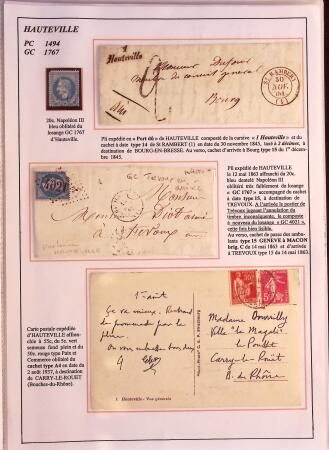 HAUTEVILLE
PC 1494
GC 1767
20c. Napoléon III
bleu oblitéré du
losange GC 1767
d'Hauteville.
1
Hauteville
Monsieur Dufour
membre du conseil général
Bourg
ST RAMBERT
30
NOV.
(1)
Pli expédié en « Port dû » de HAUTEVILLE composé de la cursive « 1 Hauteville » et du
cachet à date type 14 de St RAMBERT (1) en date du 30 novembre 1845, taxé à 2 décimes, à
destination de BOURG-EN-BRESSE. Au verso, cachet d'arrivée à Bourg type 15 du 1er décem-
bre 1845.
GC TREVOUX
Monsieur
Monsieur Diot
à Trévoux
HAUTEVILLE
Pli expédié de HAUTEVILLE
le 12 mai 1863 affranchi du 20c.
bleu dentelé Napoléon III
oblitéré très faiblement du losange
« GC 1767 » accompagné du cachet
à date type 15, à destination de
TREVOUX. A l'arrivée le postier de
Trévoux jugeant l'annulation du
timbre inconséquente, le composte
à nouveau du losange « GC 4021 »,
cette fois bien lisible.
Au verso, cachet de passe des ambu-
lants type 15 GENEVE A MACON
brig. C du 14 mai 1863 et d'arrivée
à TREVOUX type 15 du 14 mai 1863.
Carte postale expédiée
d'HAUTEVILLE affran-
chie à 55c. du 5c. vert
semeuse fond plein et du
50c. rouge type Paix et
Commerce oblitérés du
cachet type A4 en date du
2 août 1937, à destination
de CARRY-LE-ROUET
(Bouches-du-Rhône).
1er août
Ça va mieux.
de promenade par la
pluie.
On vous embrasse tous deux
Madame
Villa "le Mazet"
le Rouet
Carry-le-Rouet
B. du Rhône
1 Hauteville - Vue générale